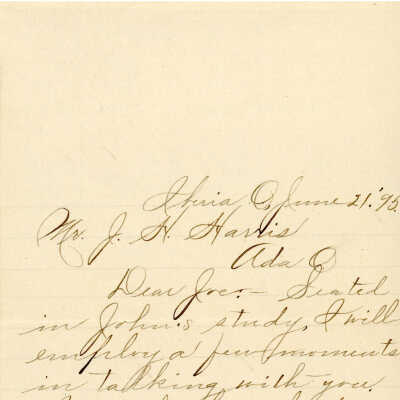 Iberia O, June 21.' 95.
Mr. J. H. Harris
Ada O
Dear Joe:— Seated
in John's study, I will
employ a few moments
in talking with you.